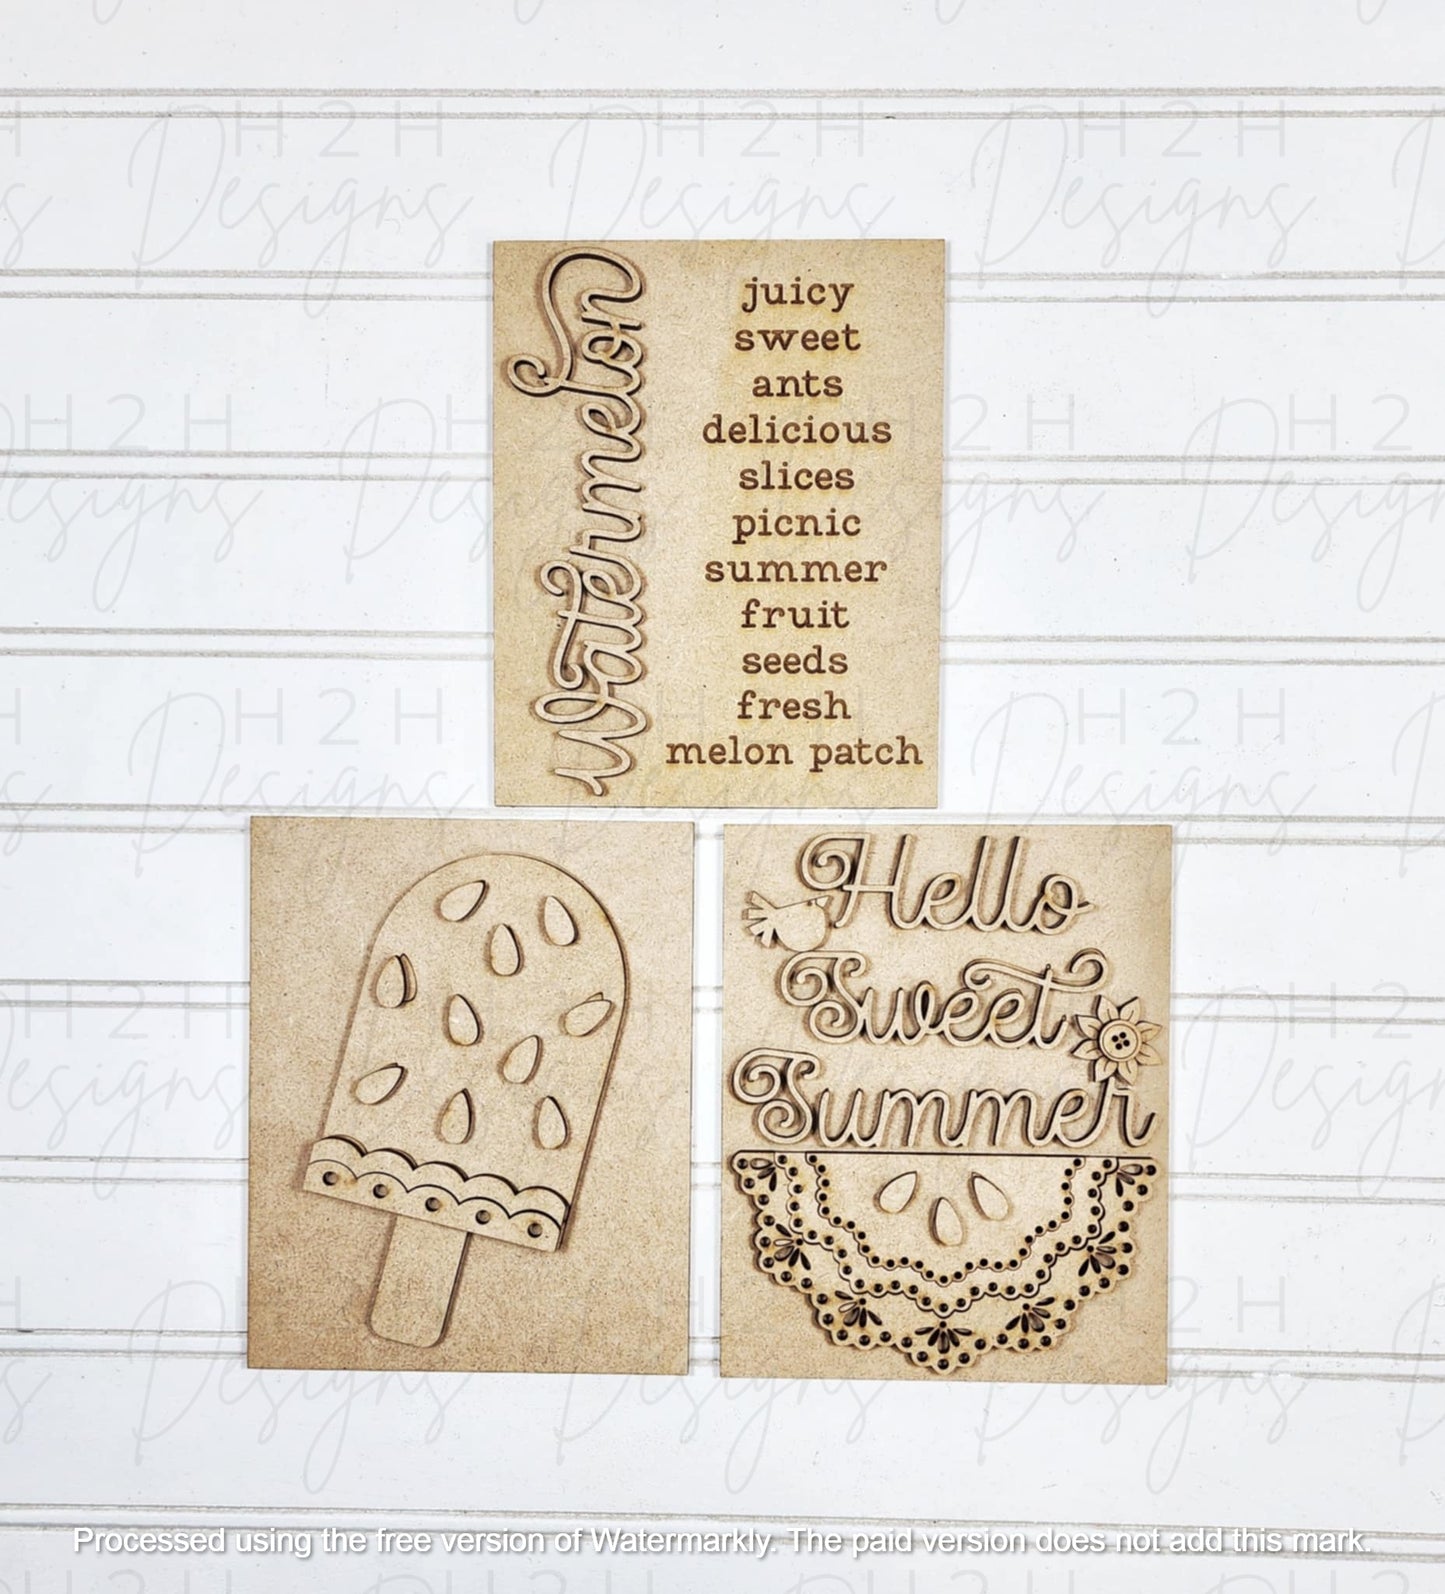 Watermelon
juicy
sweet
ants
delicious
slices
picnic
summer
fruit
seeds
fresh
melon patch
Hello
Sweet
Summer
H2H
Designs
Processed using the free version of Watermarkly. The paid version does not add this mark.